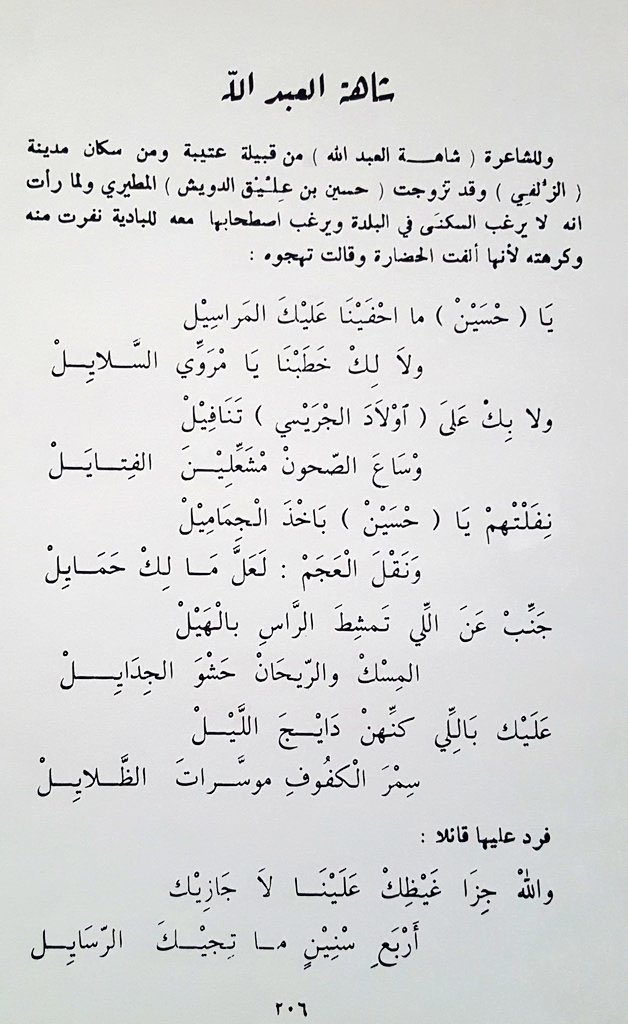 شاهة العبد اللّه
وللشاعرة ( شاهـــة العبد الله ) من قبيلة عتيبة ومن سكان مدينة
( الزُلفِي ) وقد تزوجت ( حسين بن عـلـيْـق الدويش ) المطيري ولما رأت
انه لا يرغب السكنَى في البلدة ويرغب اصطحابها معه للبادية نفرت منه
وكرهته لأنها ألفت الحضارة وقالت تهجوه :
يَا ( حْسَيْنْ ) ما احْفَيْنَا عَليْكَ المَراسِيْل
ولاَ لِـكْ خَطَبْنَا يَا مْرَوِّي السَّـلايِـلْ
ولا بِكْ عَلىَ ( اوْلاَدَ الجْرَيْسي ) تَنَافِيْلْ
وْسَاعَ الصّحونْ مْشَعِّلِيْـنَ الفِتـايَـلْ
نِفَلْتْهمْ يَا ( حْسَيْنْ ) بَاخْذَ الْجِمَامِيْلْ
وَنَقْلَ الْعَجَمْ : لَعَلَّ مَـا لِكْ حَمَـايِلْ
جَنِّبْ عَنَ اللِّي تَمشِطَ الرَّاسِ بالْهَيْلْ
المِسْكْ والرّيحَانْ حَشْوَ الجِدَايِـــلْ
عَلَيْك بَالِلِّي كنِّهنْ دَايْـجَ اللَّيْـلْ
سِمْرَ الْكفُوفِ موسَّـراتَ الظَّـلايِـلْ
فرد عليها قائلا :
واللهْ جِزَا غَيْظِكْ عَلَيْنَـا لاَ جَازِيْك
أَرْبَعِ سْنِيْنٍ مـا تِجيْـكَ الرّسَايِـل
٢٠٦